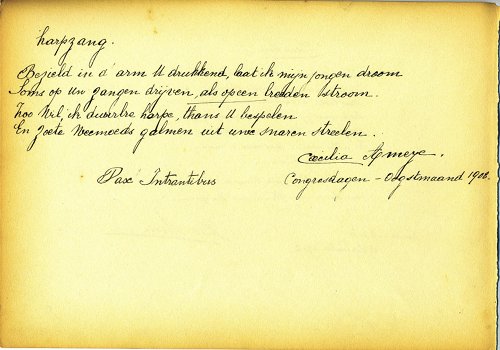 Harpzang.
Bezield in d' arm U drukkend, laat ik mijn jongen droom
Soms op Uw zangen drijven, als op een breeden stroom.
Zoo wil ik duurbre harpe, thans U bespelen
En zoete Weemoeds galmen uit uwe snaren streelen.
Cæcilia Ameye.
Pax Intrantibus
Congresdagen - Oogstmaand 1902.